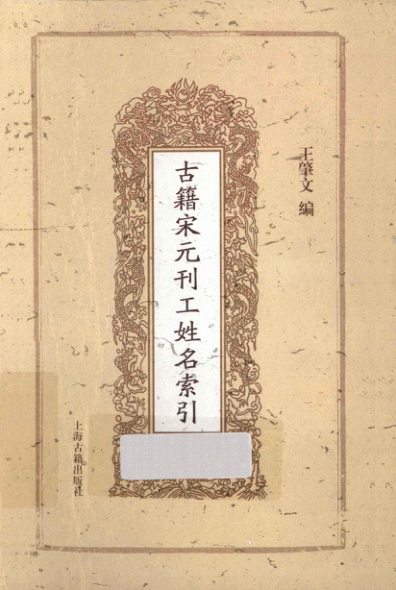 王肇文 编
古籍宋元刊工姓名索引
上海古籍出版社